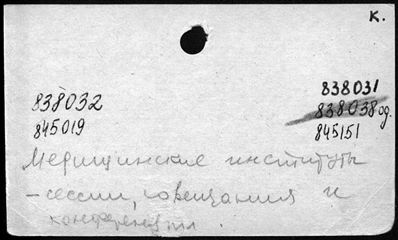 К.
838032
845019
838031
838038 од.
845151
Медицинские институты
– сессии, совещания и
конференции.